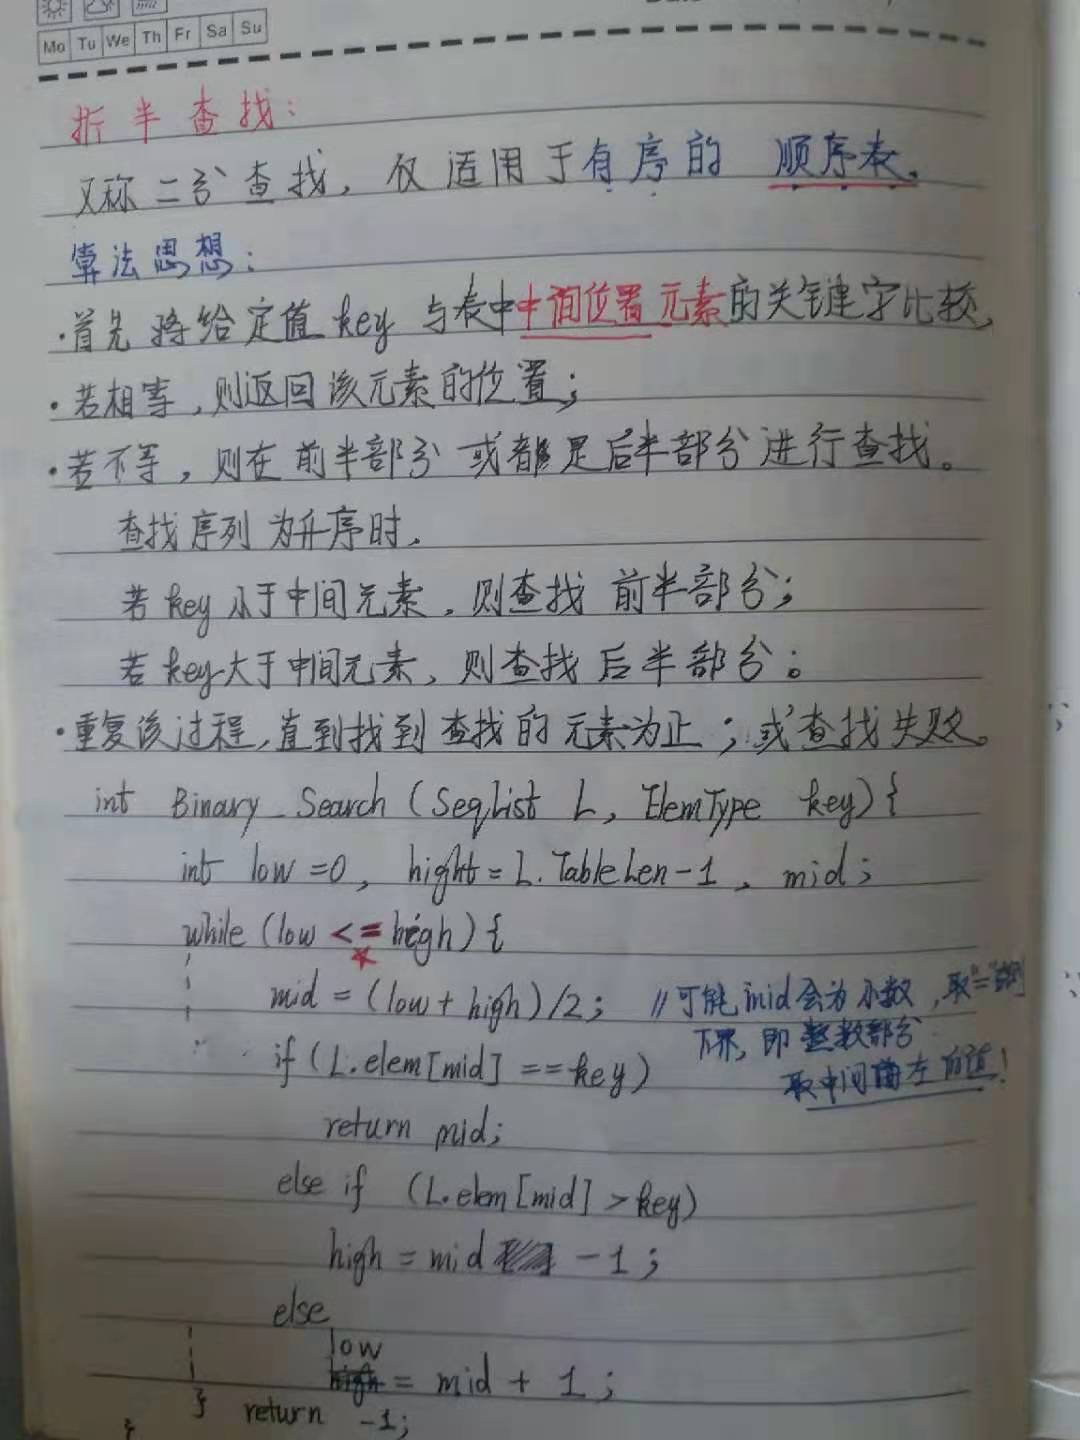 Mo Tu We Th Fr Sa Su
折半查找:
又称二分查找，仅适用于有序的 顺序表。
算法思想:
·首先将给定值key与表中中间位置元素的关键字比较,
·若相等,则返回该元素的位置;
·若不等,则在前半部分或者是后半部分进行查找。
查找序列为升序时,
若key小于中间元素,则查找前半部分;
若key大于中间元素,则查找后半部分。
·重复该过程,直到找到查找的元素为止;或查找失败。
int Binary_Search(SeqList L, ElemType key){
int low=0, hight=L.TableLen-1, mid;
while(low<=high){
mid=(low+high)/2; //可能mid会为小数,取
下界,即整数部分
取中间偏左的值!
if(L.elem[mid]==key)
return mid;
else if (L.elem[mid]>key)
high=mid -1;
else
low
=mid+1;
} return -1;
}